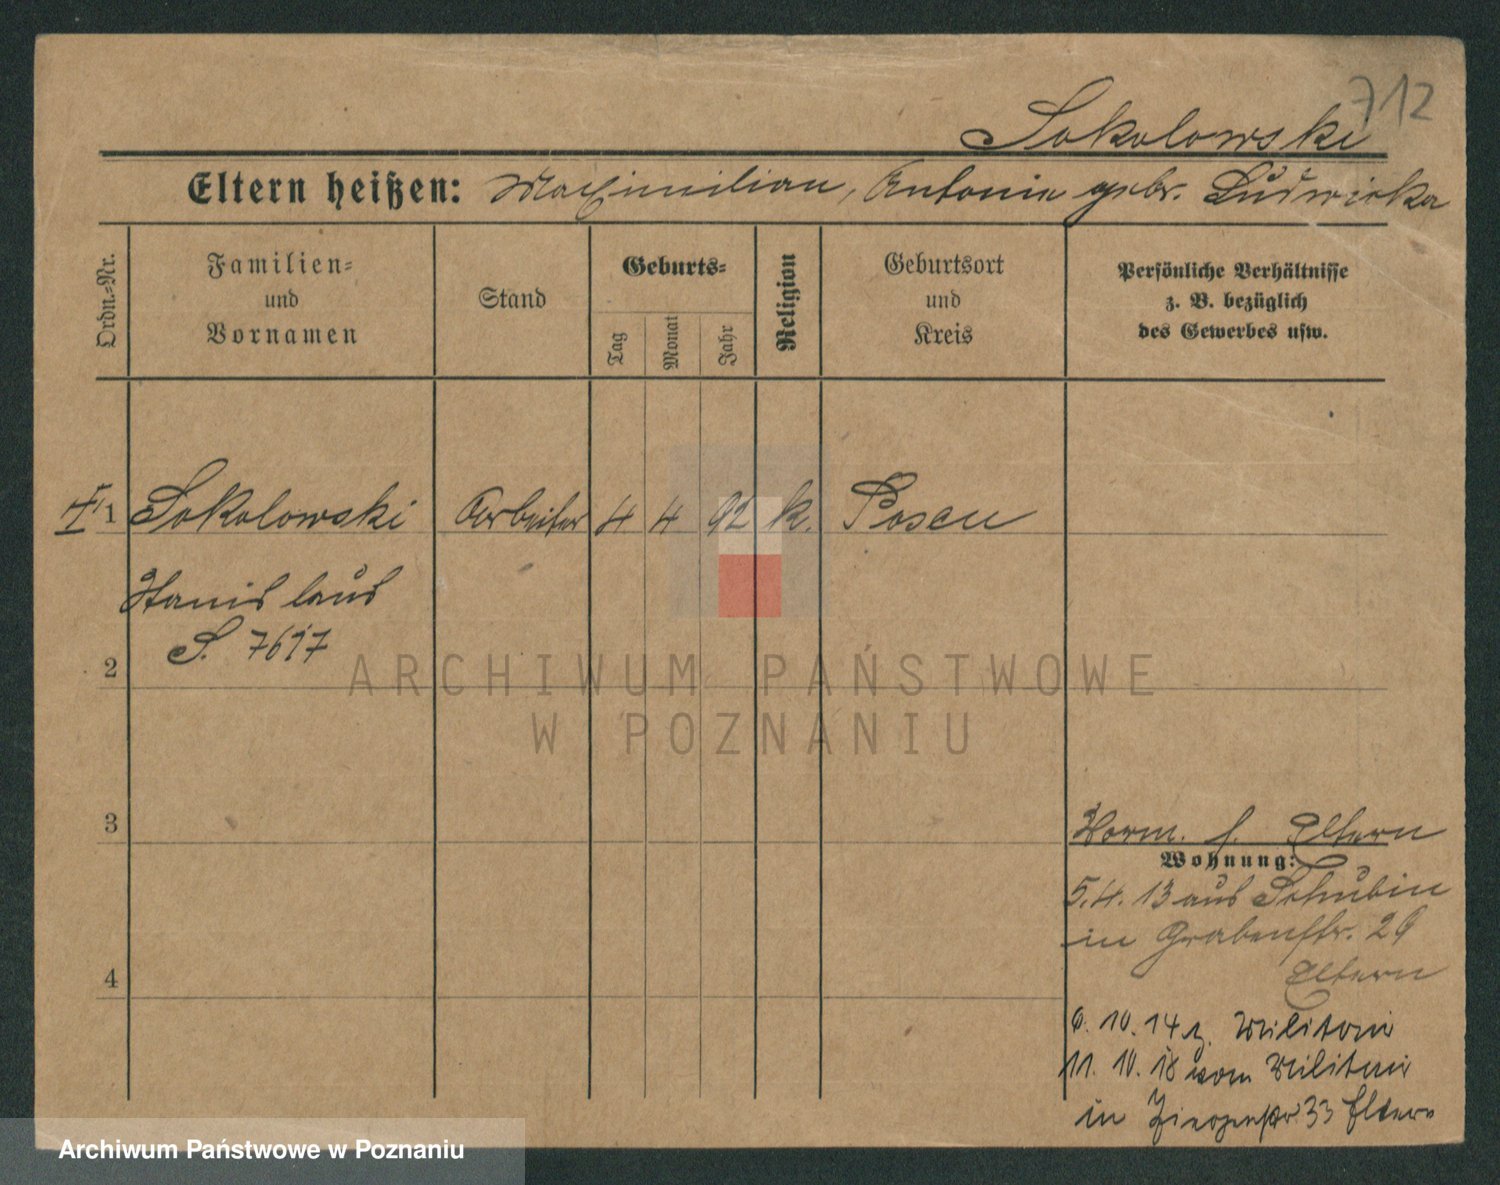 712
Sokolowski
Eltern heißen: Maximilian, Antonie geb. Ludwicka
Ordn.-Nr.
Familien-
und
Vornamen
Stand
Geburts-
Tag
Monat
Jahr
Religion
Geburtsort
und
Kreis
Persönliche Verhältnisse
z. B. bezüglich
des Gewerbes usw.
1 Sokolowski Arbeiter 4 4 92 k. Posen
Stanislaus
S. 7617
2
ARCHIWUM PAŃSTWOWE
W POZNANIU
3
Vorm. s. Eltern
Wohnung:
5.4.13 aus Schubin
in Grabenstr. 29
Eltern
4
6.10.14 z. Militär
11.10.18 vom Militär
in Ziegenstr 33 Eltern
Archiwum Państwowe w Poznaniu